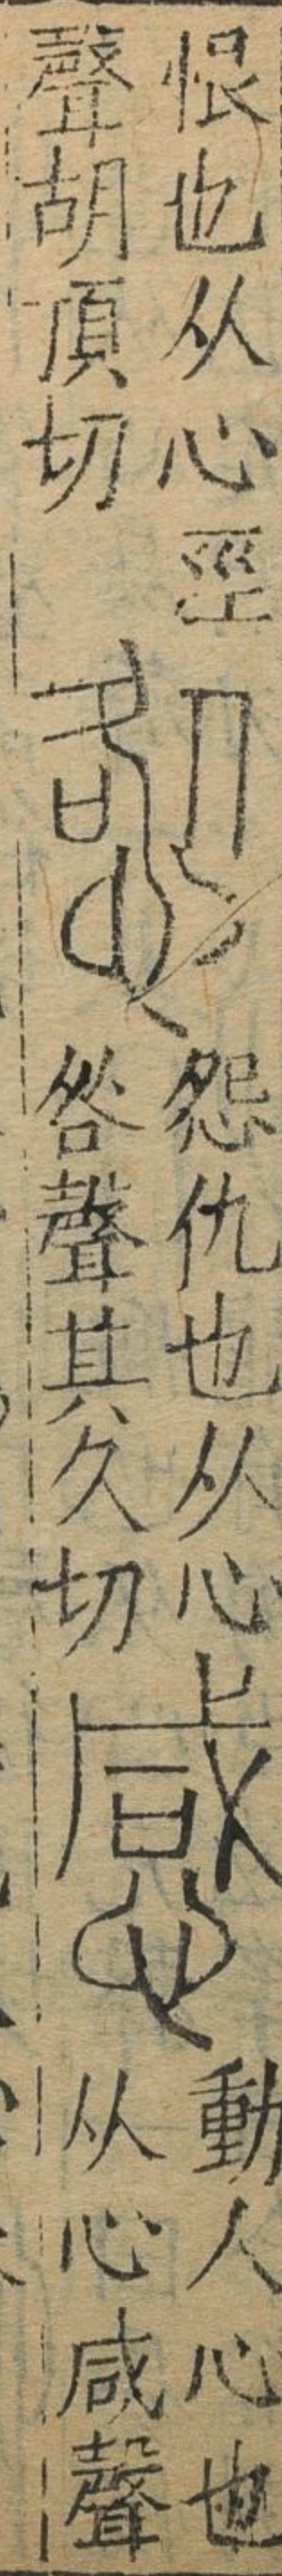 恨也从心巠
聲胡頂切
𢞭
怨仇也从心
咎聲其久切
感
動人心也
从心咸聲